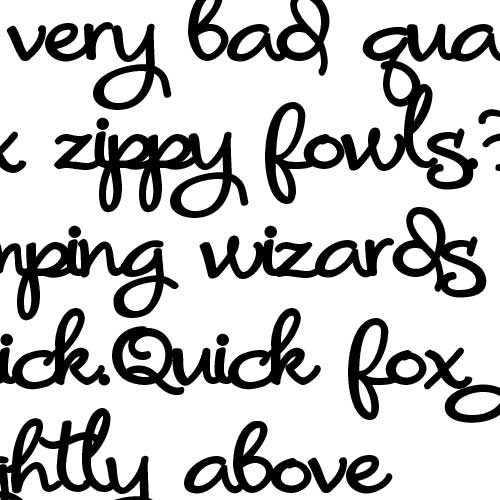 very bad qua
x zippy fowls?
mping wizards
ick.Quick fox
ightly above